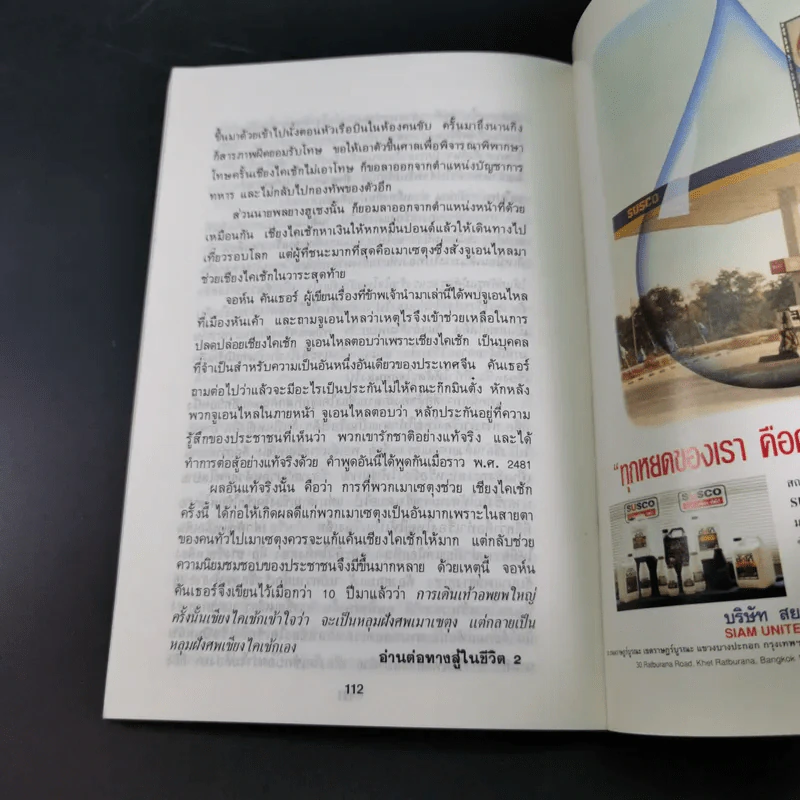 ขึ้นมาด้วยเข้าไปนั่งตอนหัวเรือบินในห้องคนขับ ครั้นมาถึงนานกิง
ก็สารภาพผิดยอมรับโทษ ขอให้เอาตัวขึ้นศาลเพื่อพิจารณาพิพากษา
โทษครั้นเชียงไคเช็กไม่เอาโทษ ก็ขอลาออกจากตำแหน่งบัญชาการ
ทหาร และไม่กลับไปกองทัพของตัวอีก
ส่วนนายพลยางฮูเชงนั้น ก็ยอมลาออกจากตำแหน่งหน้าที่ด้วย
เหมือนกัน เชียงไคเช็กหาเงินให้หกหมื่นปอนด์แล้วให้เดินทางไป
เที่ยวรอบโลก แต่ผู้ที่ชนะมากที่สุดคือเมาเซตุงซึ่งสั่งจูเอนไหลมา
ช่วยเชียงไคเช็กในวาระสุดท้าย
จอห์น คันเธอร์ ผู้เขียนเรื่องที่ข้าพเจ้านำมาเล่านี้ได้พบจูเอนไหล
ที่เมืองหันเค้า และถามจูเอนไหลว่าเหตุไรจึงเข้าช่วยเหลือในการ
ปลดปล่อยเชียงไคเช็ก จูเอนไหลตอบว่าเพราะเชียงไคเช็ก เป็นบุคคล
ที่จำเป็นสำหรับความเป็นอันหนึ่งอันเดียวของประเทศจีน คันเธอร์
ถามต่อไปว่าแล้วจะมีอะไรเป็นประกันไม่ให้คณะก๊กมินตั๋ง หักหลัง
พวกจูเอนไหลในภายหน้า จูเอนไหลตอบว่า หลักประกันอยู่ที่ความ
รู้สึกของประชาชนที่เห็นว่า พวกเขารักชาติอย่างแท้จริง และได้
ทำการต่อสู้อย่างแท้จริงด้วย คำพูดอันนี้ได้พูดกันเมื่อราว พ.ศ. 2481
ผลอันแท้จริงนั้น คือว่า การที่พวกเมาเซตุงช่วย เชียงไคเช็ก
ครั้งนี้ ได้ก่อให้เกิดผลดีแก่พวกเมาเซตุงเป็นอันมากเพราะในสายตา
ของคนทั่วไปเมาเซตุงควรจะแก้แค้นเชียงไคเช็กให้มาก แต่กลับช่วย
ความนิยมชมชอบของประชาชนจึงมีขึ้นมากหลาย ด้วยเหตุนี้ จอห์น
คันเธอร์จึงเขียนไว้เมื่อกว่า 10 ปีมาแล้วว่า การเดินเท้าอพยพใหญ่
ครั้งนั้นเชียงไคเช็กเข้าใจว่า จะเป็นหลุมฝังศพเมาเซตุง แต่กลายเป็น
หลุมฝังศพเชียงไคเช็กเอง
อ่านต่อทางสู้ในชีวิต 2
112
SUSCO
"ทุกหยดของเรา คือ
SUSCO
SUSCO
บริษัท สย
SIAM UNITE
30 Ratburana Road, Khet Ratburana, Bangkok